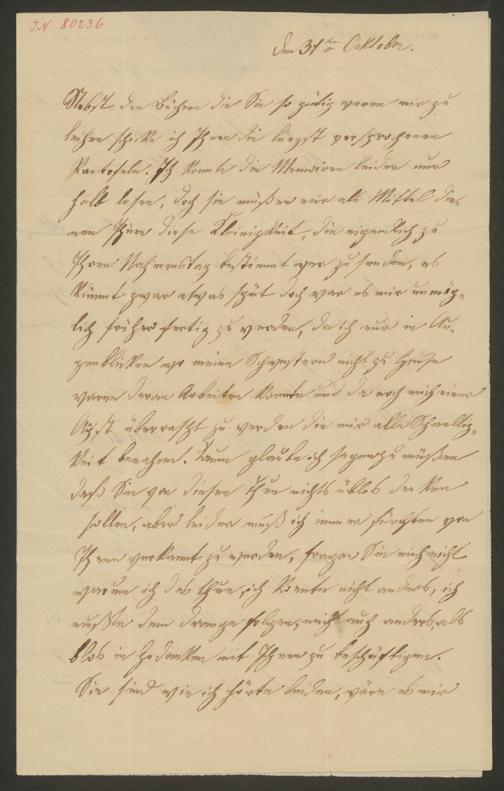 IN 80236
den 31ten Oktober.
Nebst den Büchern die Sie so gütig waren mir zu
leihen schicke ich Ihnen die längst versprochenen
Pantofeln. Ich konte die Memoiren leider nur
halb lesen, doch sie mußten mir als Mittel die-
nen Ihnen diese Kleinigkeit, die eigentlich zu
Ihrem Nahmenstag bestimmt war zu senden, es
kömmt zwar etwas spät doch war es mir unmög-
lich früher fertig zu werden, da ich nur in Au-
genbliken wo meine Schwestern nicht zu Hause
waren daran Arbeiten konnte und da noch mit einer
Angst überrascht zu werden die mir alle Schnellig-
keit benahm. Kaum glaube ich sagen zu müßen
daß Sie von diesem Thun nichts übles denken
sollen, aber leider muß ich immer fürchten von
Ihnen verkannt zu werden, fragen Sie mich nicht
warum ich das thue, ich konte nicht anders, ich
mußte dem Drange folgen, mich auch anders als
blos in Gedanken mit Ihnen zu beschäftigen.
Sie sind wie ich hörte leidend, wäre es mir